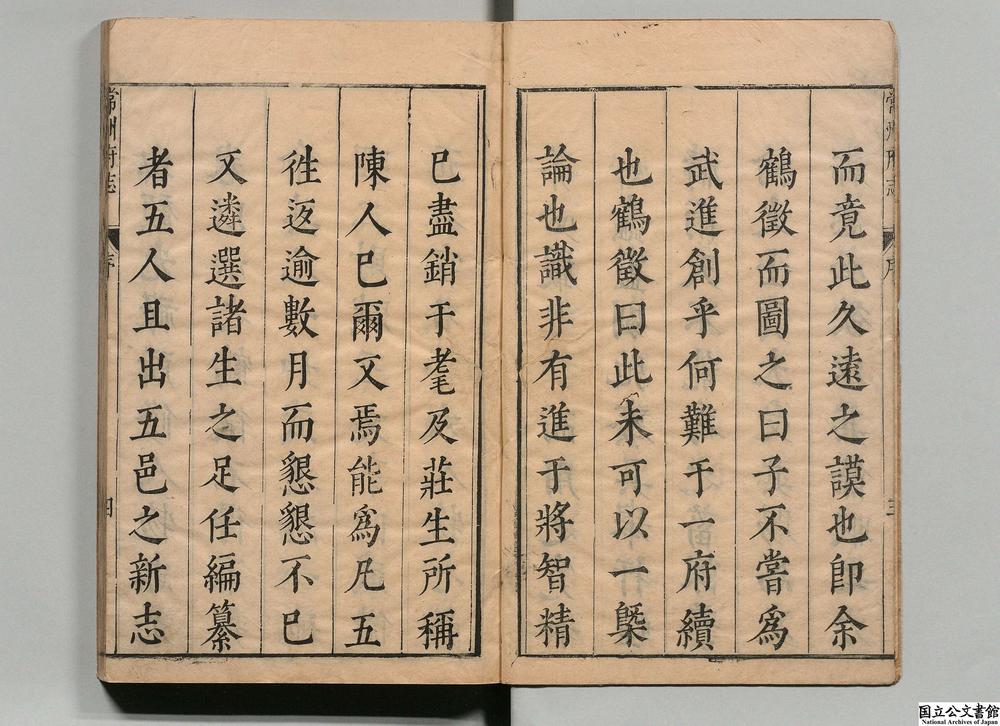 常州府志
序
三
而竟此久遠之謨也卽余
鶴徵而圖之曰子不嘗爲
武進創乎何難于一府續
也鶴徵曰此未可以一槩
論也識非有進于將智精
已盡銷于耄及莊生所稱
陳人已爾又焉能爲凡五
徃返逾數月而懇懇不已
又遴選諸生之足任編纂
者五人且出五邑之新志
常州府志
序
四
国立公文書館
National Archives of Japan